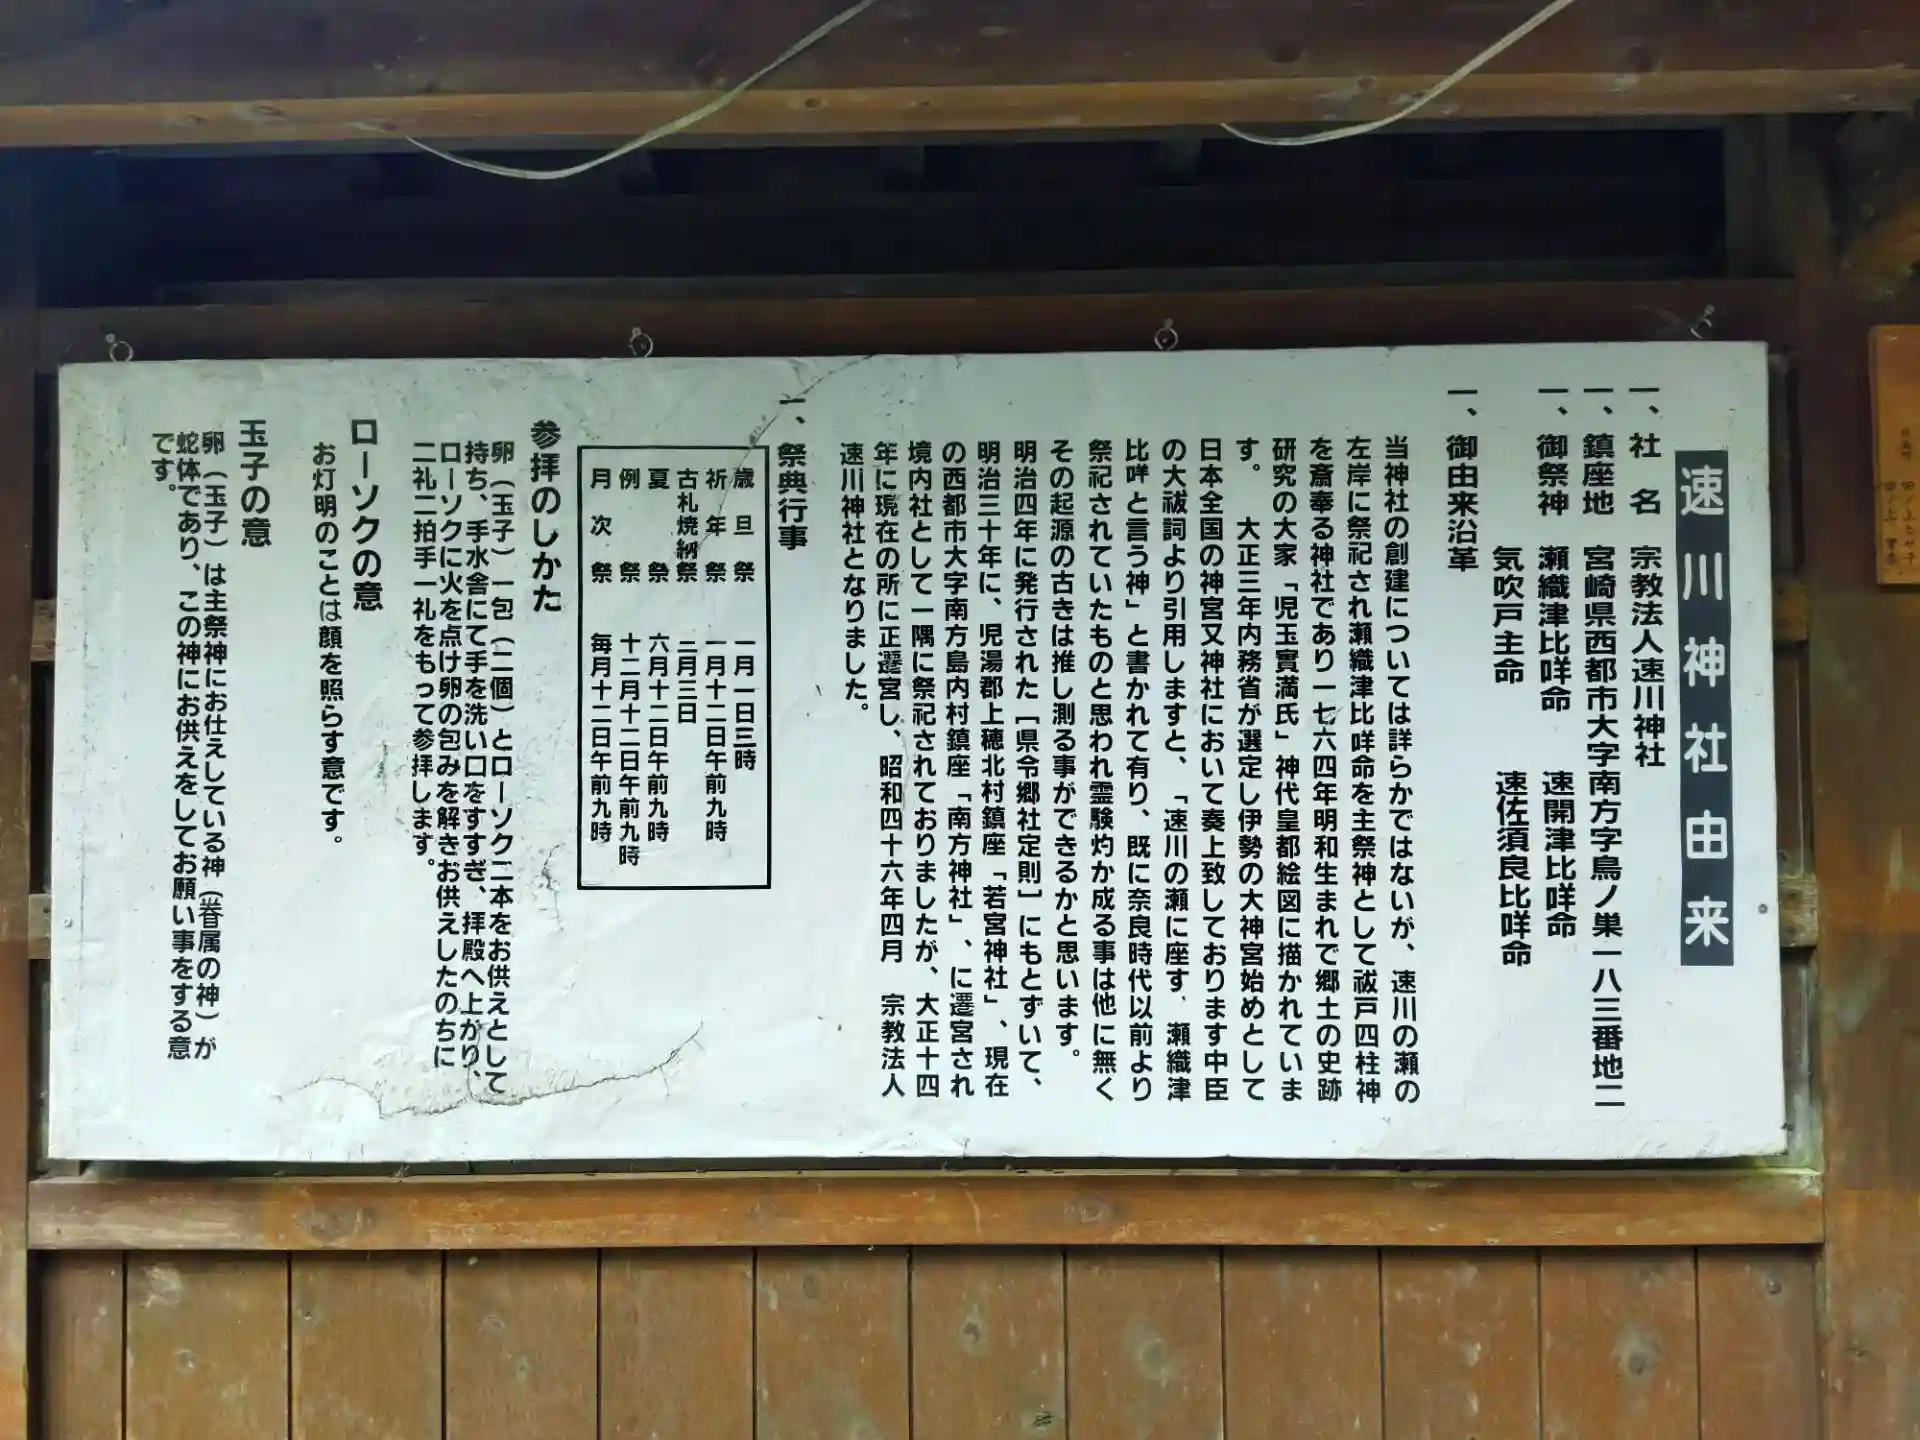 速川神社由来
一、社　名　宗教法人速川神社
一、鎮座地　宮崎県西都市大字南方字鳥ノ巣一八三番地二
一、御祭神　瀬織津比咩命　　速開津比咩命
気吹戸主命　　速佐須良比咩命
一、御由来沿革
当神社の創建については詳らかではないが、速川の瀬の
左岸に祭祀され瀬織津比咩命を主祭神として祓戸四柱神
を斎奉る神社であり一七六四年明和生まれで郷土の史跡
研究の大家「児玉實満氏」神代皇都絵図に描かれていま
す。　大正三年内務省が選定し伊勢の大神宮始めとして
日本全国の神宮又神社において奏上致しております中臣
の大祓詞より引用しますと、「速川の瀬に座す、瀬織津
比咩と言う神」と書かれて有り、既に奈良時代以前より
祭祀されていたものと思われ霊験灼か成る事は他に無く
その起源の古きは推し測る事ができるかと思います。
明治四年に発行された［県令郷社定則］にもとずいて、
明治三十年に、児湯郡上穂北村鎮座「若宮神社」、現在
の西都市大字南方島内村鎮座「南方神社」、に遷宮され
境内社として一隅に祭祀されておりましたが、大正十四
年に現在の所に正遷宮し、昭和四十六年四月　宗教法人
速川神社となりました。
一、祭典行事
歳旦祭　一月一日三時
祈年祭　一月十二日午前九時
古札焼納祭　二月三日
夏祭　六月十二日午前九時
例祭　十二月十二日午前九時
月次祭　毎月十二日午前九時
参拝のしかた
卵（玉子）一包（二個）とローソク二本をお供えとして
持ち、手水舎にて手を洗い口をすすぎ、拝殿へ上がり、
ローソクに火を点け卵の包みを解きお供えしたのちに
二礼二拍手一礼をもって参拝します。
ローソクの意
お灯明のことは顔を照らす意です。
玉子の意
卵（玉子）は主祭神にお仕えしている神（眷属の神）が
蛇体であり、この神にお供えをしてお願い事をする意
です。